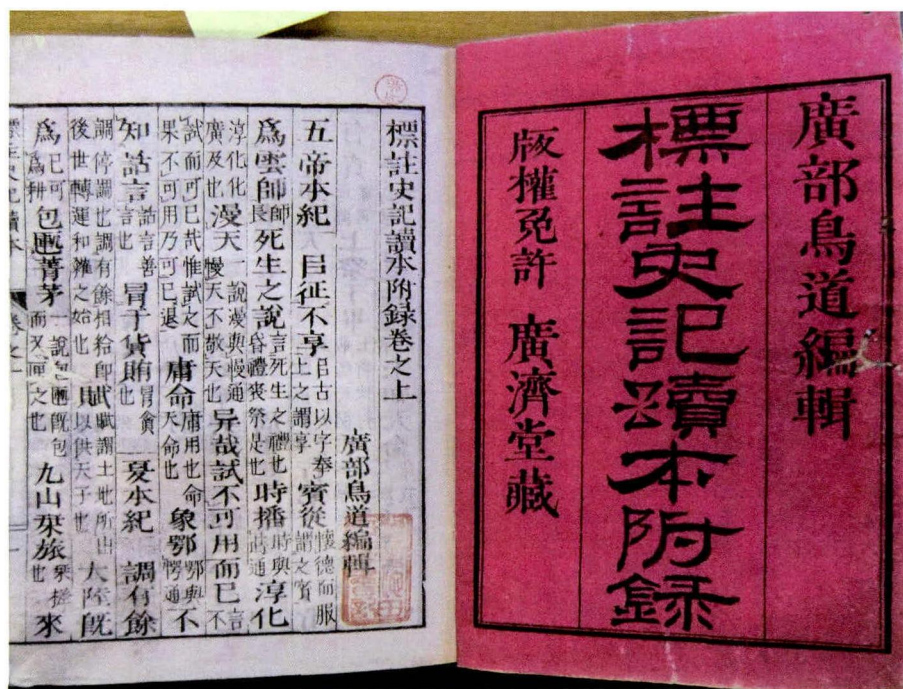 廣部鳥道編輯
標註史記讀本附録
版權免許 廣濟堂藏
標註史記讀本附録卷之上
廣部鳥道編輯
五帝本紀 㠯征不享 㠯古以字奉上之謂享 賓從 懷德而服謂之賓
爲雲師 師長 死生之說 言死生之禮也昏禮喪祭是也 時播 時與蒔通 淳化
淳化化廣及也 漫天 一說漫與慢通慢天不敬天也 异哉試不可用而已 言不試而可已哉惟試之而
果不可用乃可已退 庸命 庸用也命天命也 象鄂 鄂與愕通 不
知話言 話言善言也 冒于貨賄 冒貪也 夏本紀 調有餘
調停調也調有餘相給即後世轉運和糴之始也 賦 賦謂土地所出以供天子也 大陸既
爲 已可爲耕 包匭菁茅 一說包匭既包而又匣之也 九山栞旅 栞槎也 來